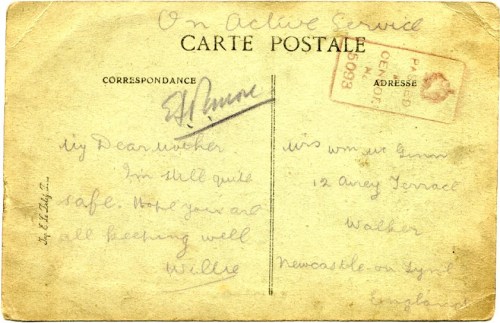 On Active Service
CARTE POSTALE
CORRESPONDANCE
ADRESSE
PASSED
CENSOR
5093
My Dear Mother
I'm still quite
safe. Hope you are
all keeping well
Willie
Mrs Wm Mc
12 Airey Terrace
Walker
Newcastle-on Tyne
England